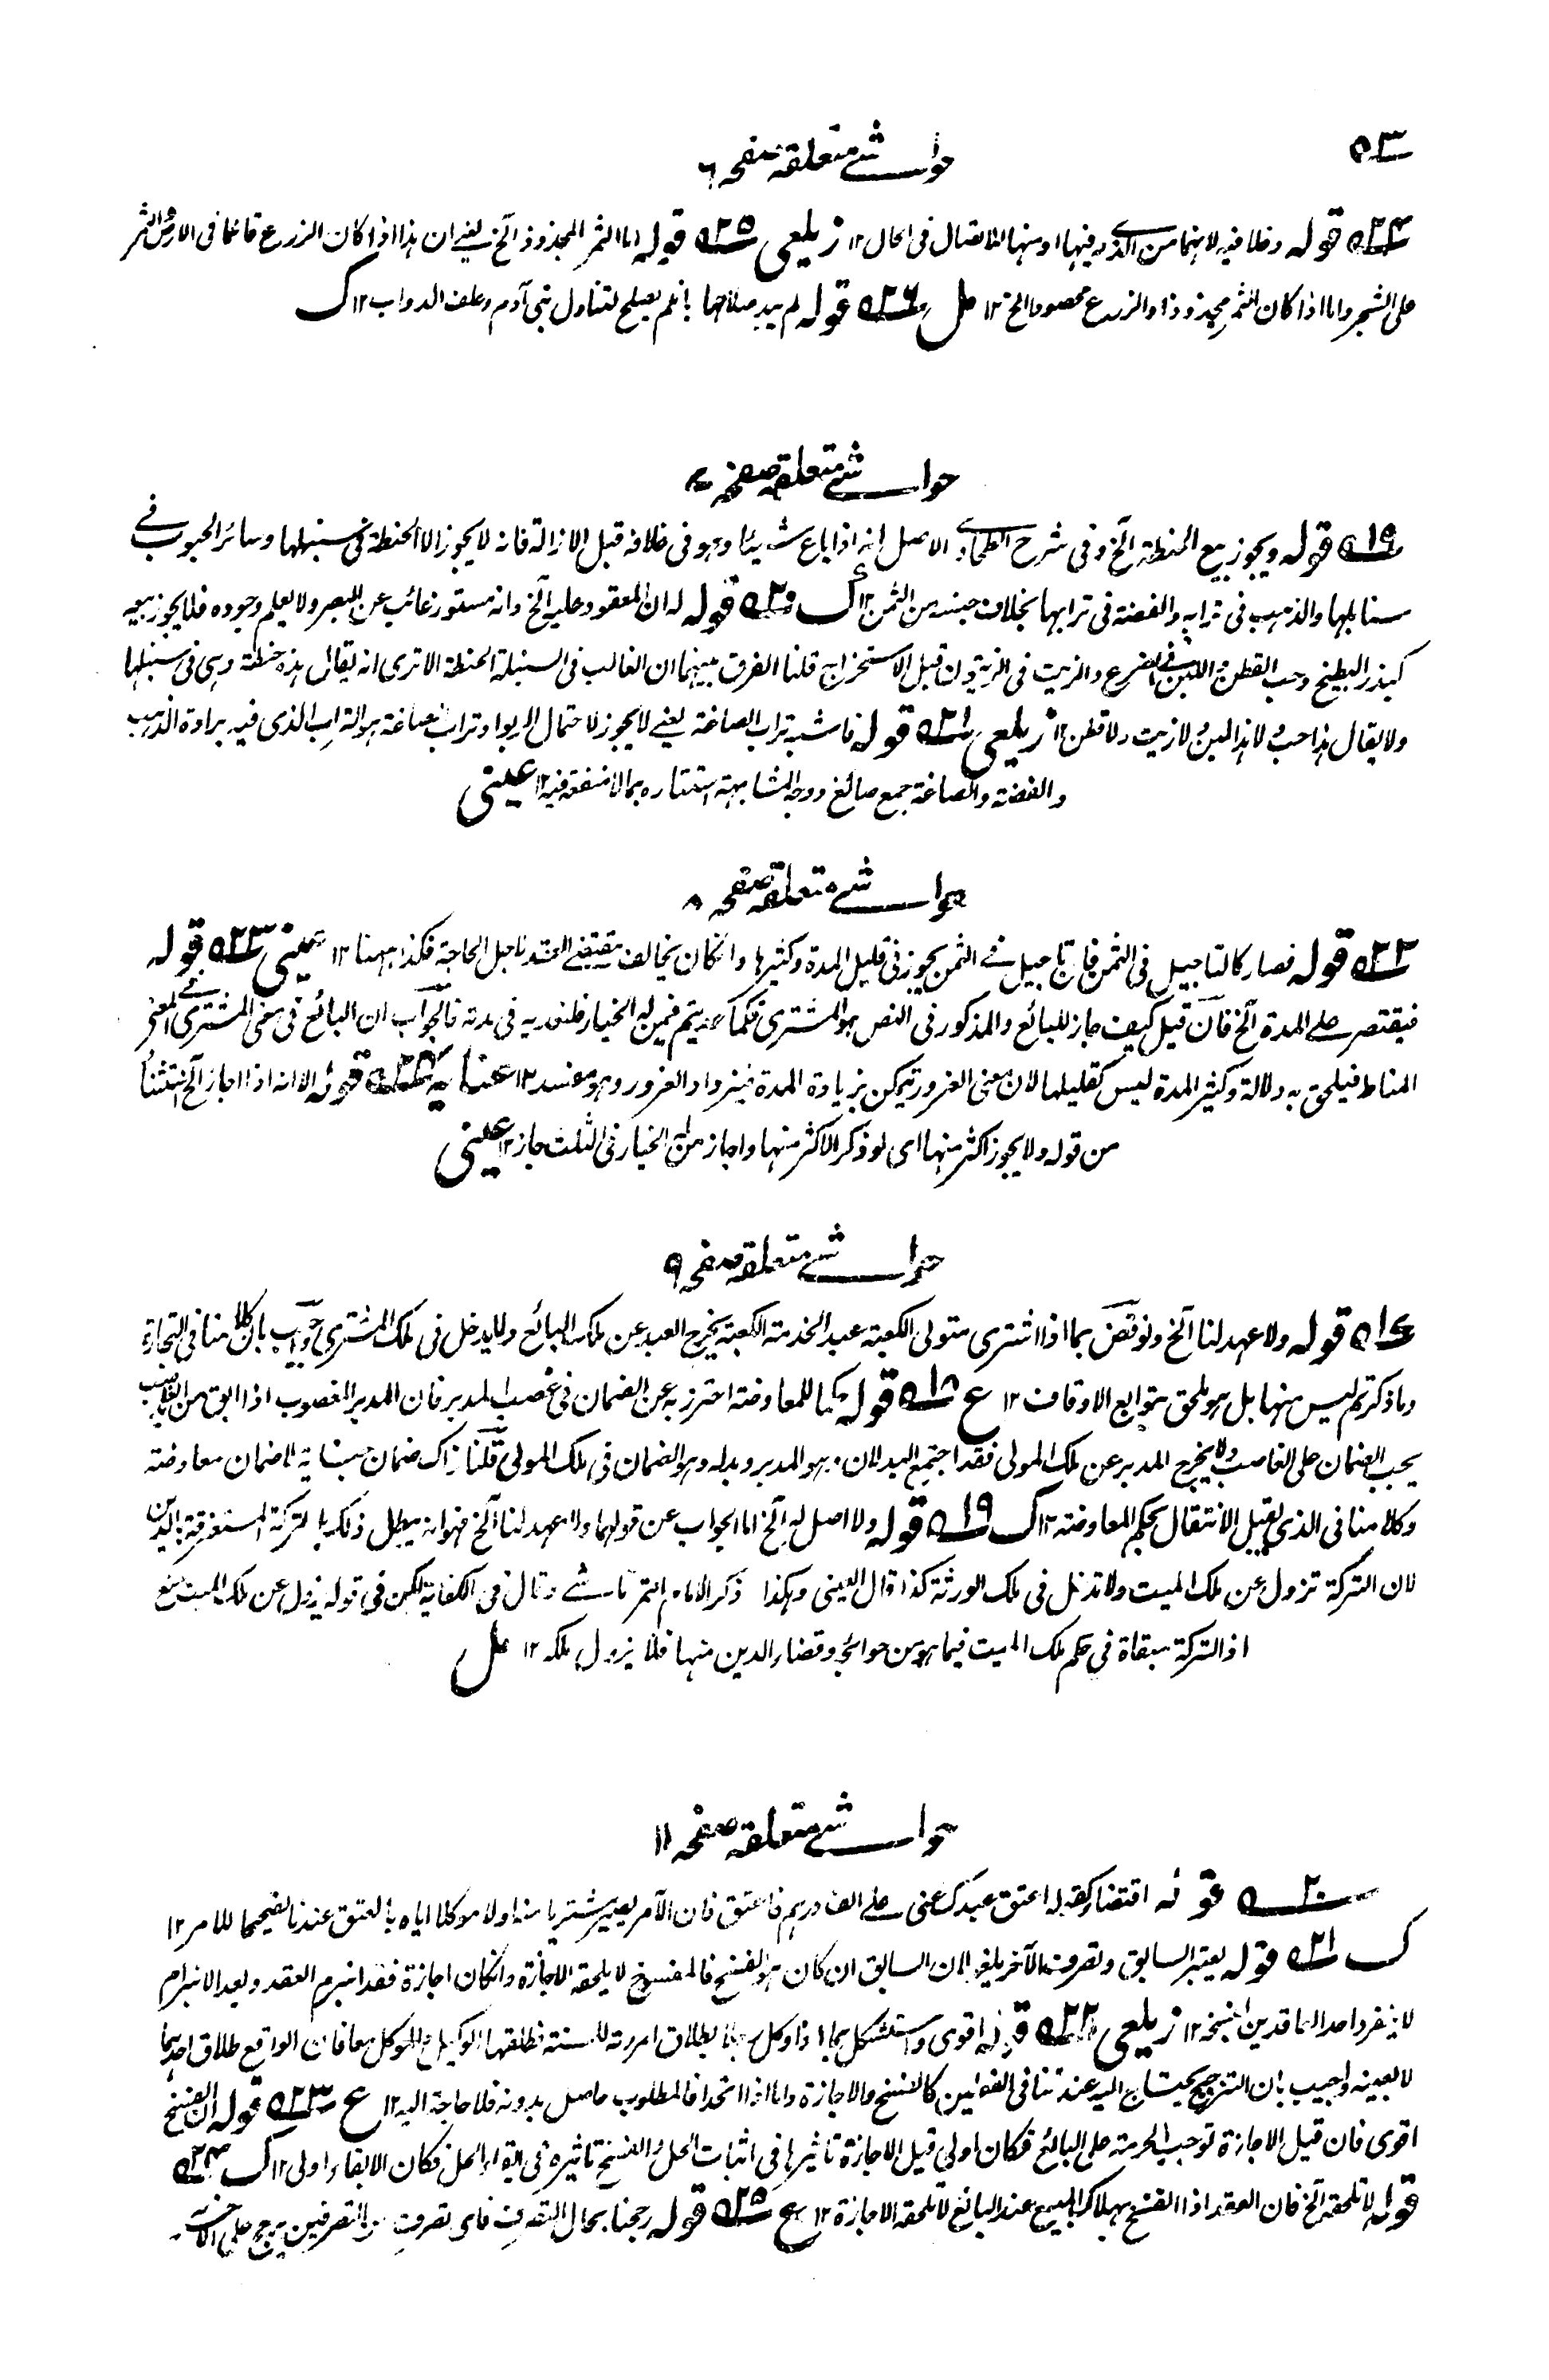 ٥٣
حواشے متعلقہ صفحہ ٦
٢٤ قوله دخلا فيه لانهما من فيها او منها للاتصال فى الحال ١٢ زيلعى ٢٥ قوله اما الثمر المجذوذ الخ يعنے ان هذا اذا كان الزرع قائما فى الارض والثمر
على الشجر واما اذا كان الثمر مجذوذا والزرع محصودا الخ ١٢ عل ٢٦ قوله لم يبد صلاحها بان لم يصلح لتناول بنى آدم وعلف الدواب ١٢ ك
حواشے متعلقہ صفحہ ٧
١٩ قوله ويجوز بيع الحنطة الخ وفى شرح الطحاوى الاصل انه اذا باع شيئا وهو فى غلافه قبل الازالة فانه لا يجوز الا الحنطة فى سنبلها وسائر الحبوب فے
سنابلها والذهب فى ترابه والفضة فى ترابها بخلاف جنسه من الثمن ١٢ ك ٢٠ قوله له ان المعقود عليه الخ وانه مستور غائب عن البصر ولا يعلم وجوده فلا يجوز بيعه
كبذر البطيخ وحب القطن واللبن فى الضرع والزيت فى الزيتون قبل الاستخراج قلنا الفرق بينهما ان الغالب فى السنبلة الحنطة الا ترى انه يقال هذه حنطة وهى فى سنبلها
ولا يقال هذا حب ولا هذا لبن ولا زيت ولا قطن ١٢ زيلعى ٢١ قوله فاشبه تراب الصاغة يعنے لا يجوز لاحتمال الربوا وتراب الصاغة هو التراب الذى فيه برادة الذهب
والفضة والصاغة جمع صائغ ووجه المشابهة استتاره بما لا منفعة فيه ١٢ عينى
حواشے متعلقہ صفحہ ٨
٢٢ قوله فصار كالتاجيل فى الثمن فان تاجيل فے الثمن يجوز فى قليل المدة وكثيرها وان كان يخالف مقتضے العقد لاجل الحاجة فكذا ههنا ١٢ عينى ٢٣ قوله
فيقتصر علے المدة الخ فان قيل كيف جاز للبائع والمذكور فى النص هو المشترى فكما فى مدته فالجواب ان البائع فى معنى المشترى فے المعنى
المناط فيلحق به دلالة وكثير المدة ليس كقليلها لان معنى الغرور يتمكن بزيادة المدة فيزداد الغرور وهو مفسد ١٢ عناية قوله الا انه اذا اجاز الخ استثناء
من قوله ولا يجوز اكثر منها اى لو ذكر الاكثر منها واجاز من له الخيار فى الثلث جاز ١٢ عينى
حواشے متعلقہ صفحہ ٩
١٧ قوله ولا عهد لنا الخ ونوقض بما اذا اشترى متولى الكعبة عبد الخدمة الكعبة يخرج العبد عن ملك البائع ولا يدخل فى ملك المشترى جواب بان كلامنا فى التجارة
وما ذكرتم ليس منها بل هو ملحق بتوابع الاوقاف ١٢ ع ١٨ قوله حكما للمعاوضة احترز به عن الضمان فى غصب المدبر فان المدبر المغصوب اذا ابق من الغاصب
يجب الضمان على الغاصب ولا يخرج المدبر عن ملك المولى فقد اجتمع البدلان وهو المدبر وبدله وهو الضمان فى ملك المولى قلنا ذاك ضمان جناية لا ضمان معاوضة
وكلامنا فى الذى يقبل الانتقال بحكم المعاوضة ١٢ ك ١٩ قوله ولا اصل له الخ اما الجواب عن قولهما ولا عهد لنا الخ فهو انه يبطل ذلك بالتركة المستغرقة بالدين
لان التركة تزول عن ملك الميت ولا تدخل فى ملك الورثة كذا قال العينى وهكذا ذكر الامام التمرتاشے وقال فى الكفاية لكن فى قوله يزول عن ملك الميت منع
اذ التركة مبقاة فى حكم ملك الميت فيما هو من حوائجه وقضاء الدين منها فلا يزول ملكه ١٢ عل
حواشے متعلقہ صفحہ ١١
٢٠ قوله اقتضاء كقوله اعتق عبدك عنى علے الف درهم فاعتق فان الآمر يصير مشتريا منه اولا موكلا اياه بالعتق عندنا تصحيحا للامر ١٢
ك ٢١ قوله يعتبر السابق وتصرف الآخر يلغو لان السابق ان كان هو الفسخ فالمفسوخ لا يلحقه الاجازة وان كان اجازة فقد انبرم العقد وبعد الانبرام
لا ينفرد احد العاقدين بفسخه ١٢ زيلعى ٢٢ قوله اقوى واستشكل بما اذا وكل رجلا بطلاق امرءته للسنة فطلقها الوكيل والموكل معا فان الواقع طلاق احدهما
لا بعينه واجيب بان الترجيح يحتاج اليه عند تنافى الفعلين كالفسخ والاجازة واما اذا اتحدا فالمطلوب حاصل بدونه فلا حاجة اليه ١٢ ع ٢٣ قوله ان الفسخ
اقوى فان قيل الاجازة توجب الحرمة على البائع فكان اولى قيل الاجازة تاثيرها فى اثبات الحل والفسخ تاثيره فى ابقاء الحل فكان الابقاء اولى ١٢ ك ٢٤
قوله لا تلحقه الخ فان العقد اذا انفسخ بهلاك المبيع عند البائع لا تلحقه الاجازة ١٢ ع ٢٥ قوله رجحنا بحال التصرف فاى تصرف من التصرفين يرجح على الآخر